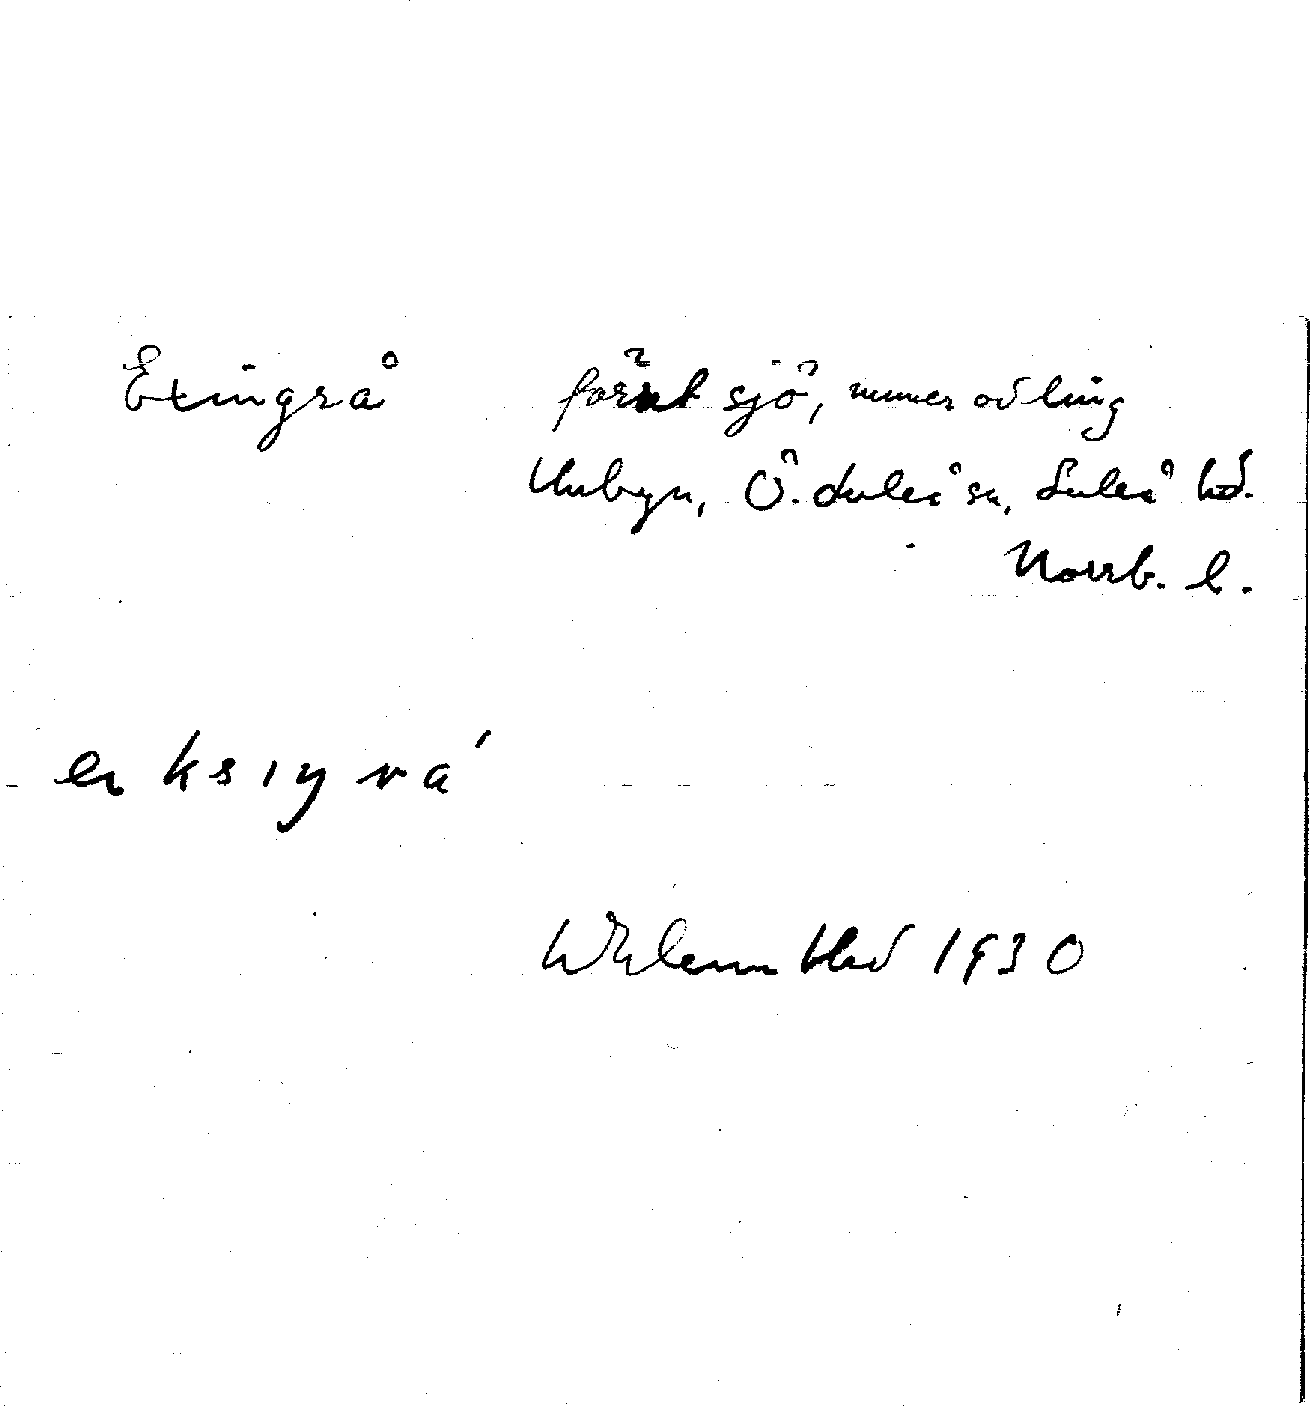 Exingrå förut sjö, numer odling
Unbyn, Ö. Luleå sn, Luleå hd.
Norrb. l.
eksıŋrá
Wklemblad 1930